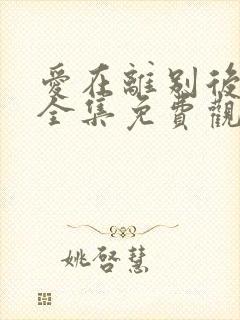 愛在離別後
全集免費觀
姚啓慧